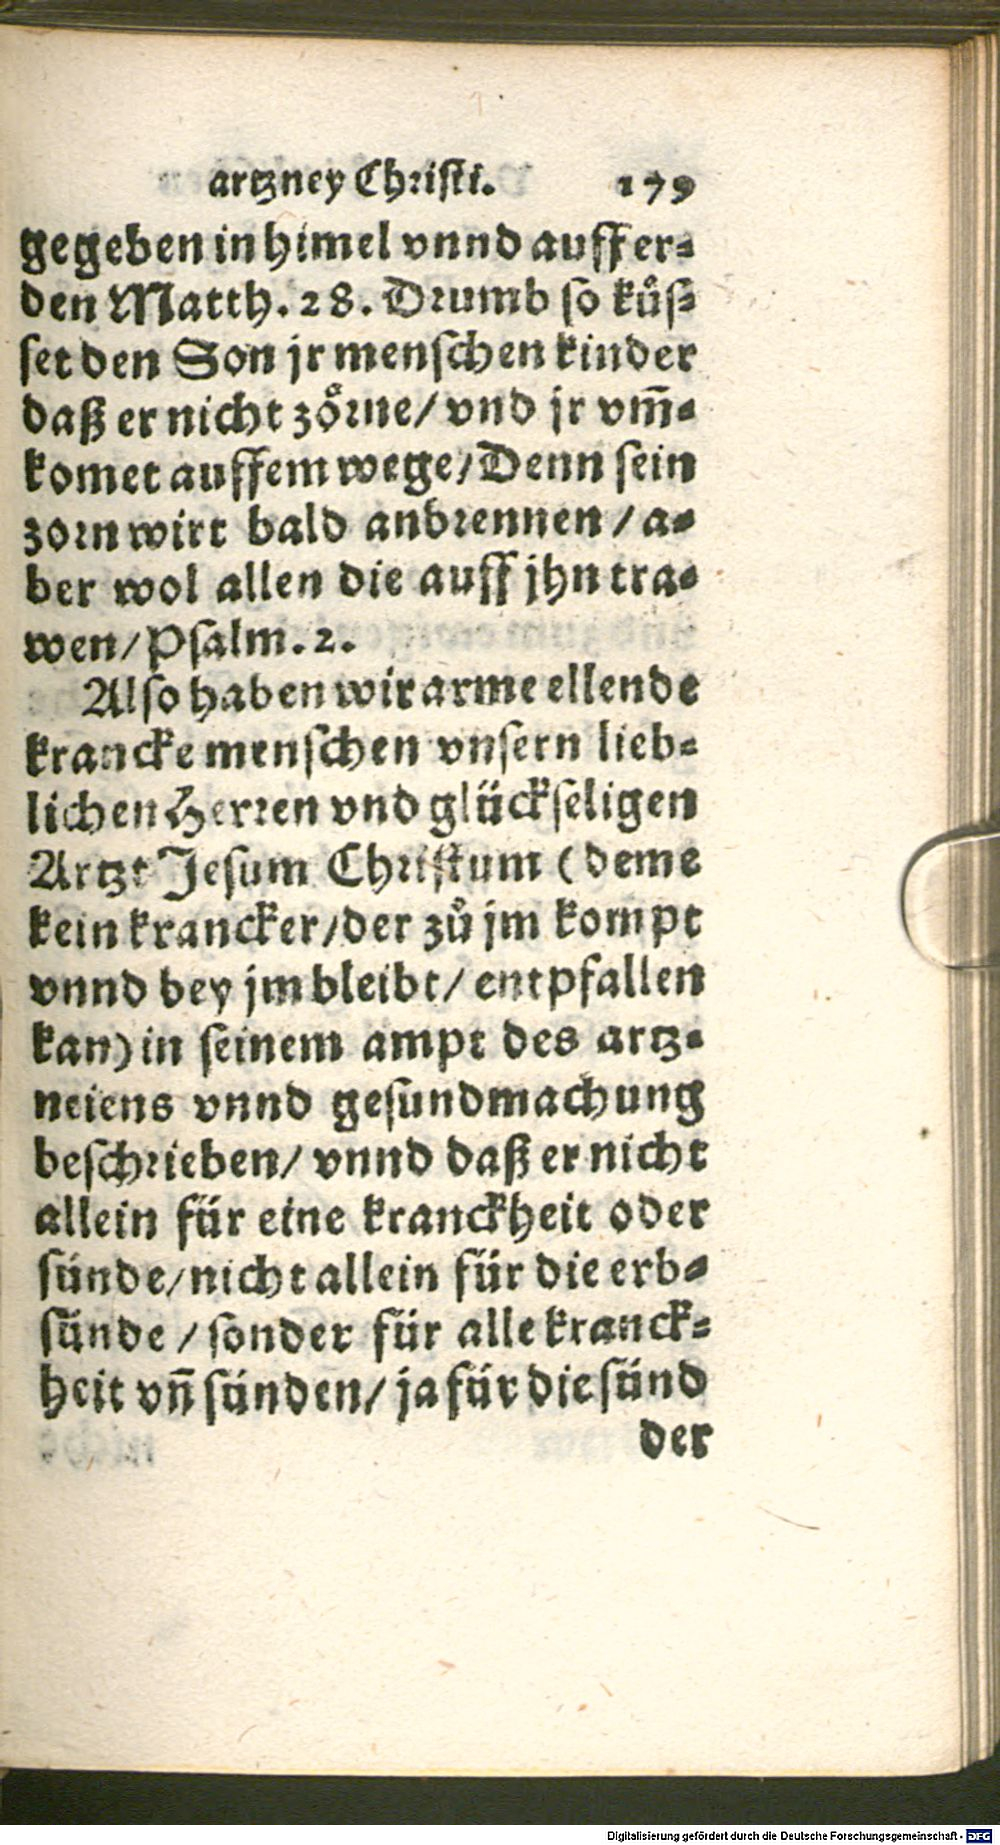 artzney Christi. 179
gegeben in himel vnnd auff er-
den Matth. 28. Drumb so kuͤs-
set den Son jr menschen kinder
daß er nicht zoͤrne/ vnd jr vm̃-
komet auffem wege/ Denn sein
zorn wirt bald anbrennen / a-
ber wol allen die auff jhn tra-
wen/ Psalm. 2.
Also haben wir arme ellende
krancke menschen vnsern lieb-
lichen Herren vnd glückseligen
Artzt Jesum Christum ( deme
kein krancker/ der zuͦ jm kompt
vnnd bey jm bleibt/ entpfallen
kan) in seinem ampt des artz-
neiens vnnd gesundmachung
beschrieben/ vnnd daß er nicht
allein für eine kranckheit oder
sünde/ nicht allein für die erb-
sünde / sonder für alle kranck-
heit vñ sünden/ ja für die sünd
der
Digitalisierung gefördert durch die Deutsche Forschungsgemeinschaft - DFG